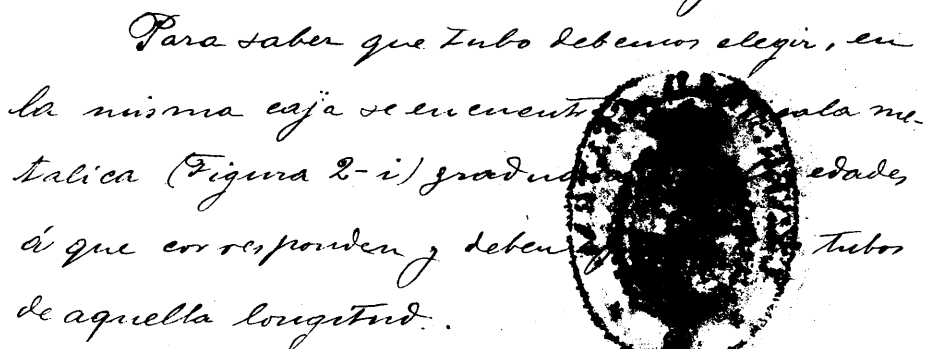 Para saber que tubo debemos elegir, en
la misma caja se encuentra me-
talica (Figura 2-i) edades
á que corresponden y deben tubos
de aquella longitud.